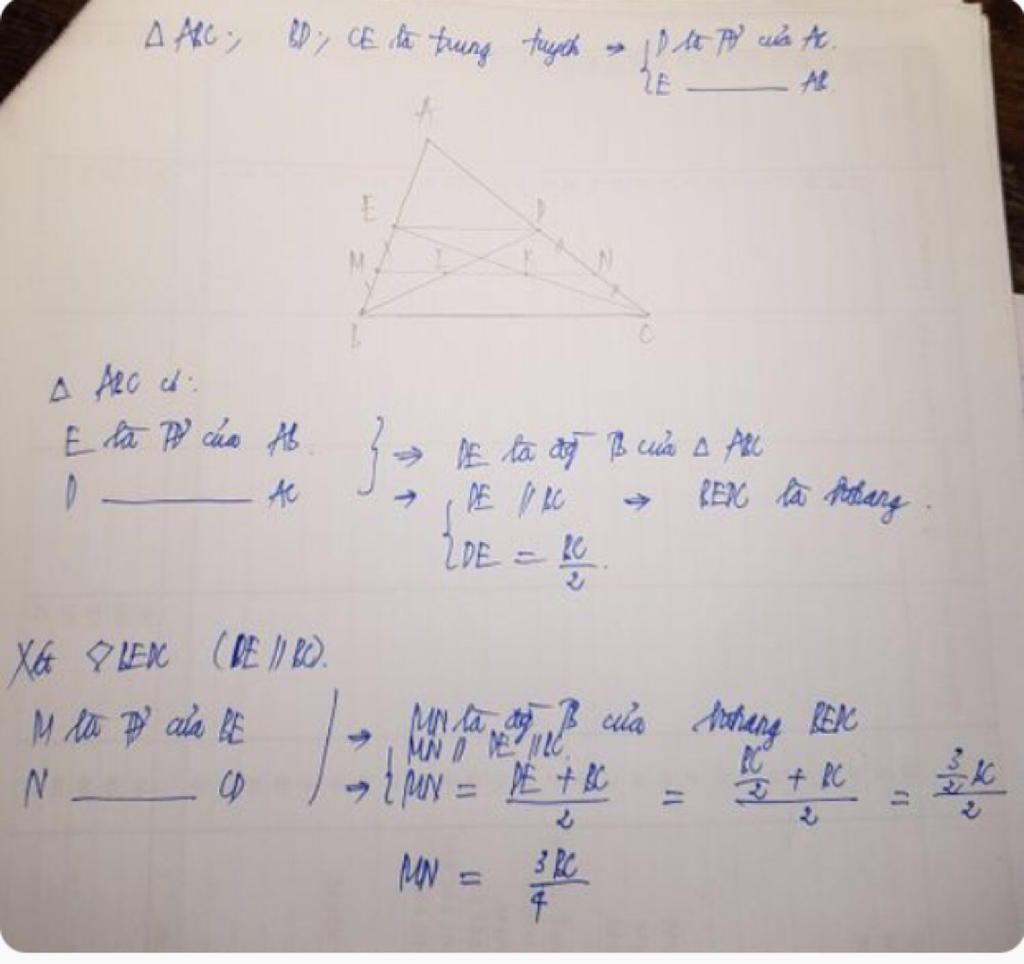 Δ ABC; BD; CE là trung tuyến ⇒ { D là TĐ của AC.
{ E ——— AB.
A
E D
M I K N
B C
Δ ABC có:
E là TĐ của AB. } ⇒ DE là đg TB của Δ ABC
D ——— AC → { DE // BC → BEDC là hthang.
{ DE = BC/2.
Xét BEDC (DE // BC).
M là TĐ của BE ⇒ MN là đg TB của hthang BEDC
MN // DE // BC
N ——— CD ⇒ { MN = (DE + BC)/2 = (BC/2 + BC)/2 = (3/2 BC)/2
MN = 3BC/4